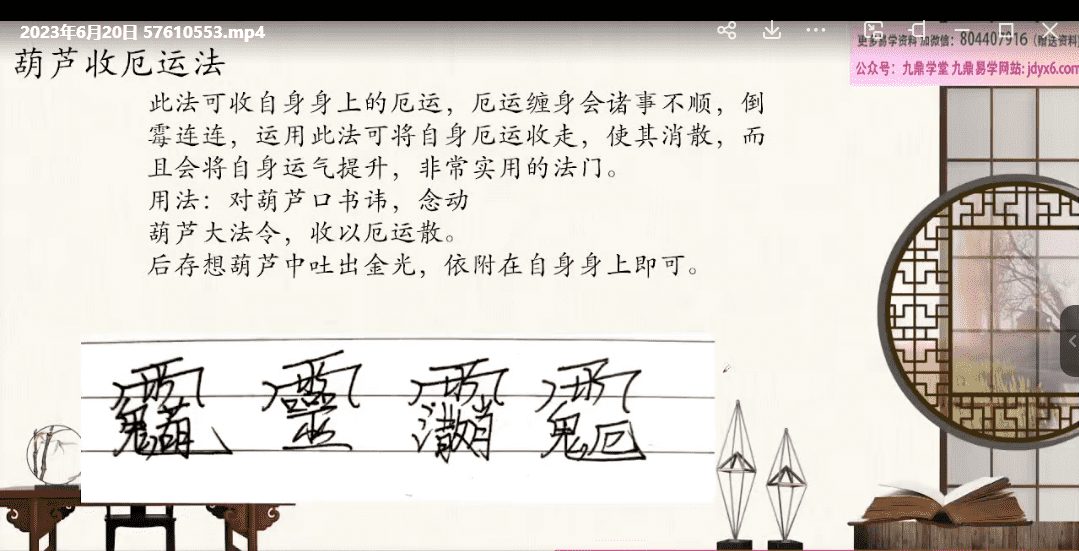 2023年6月20日 57610553.mp4
更多易学资料 加微信：804407916（赠送资料
公众号：九鼎学堂 九鼎易学网站: jdyx6.com
葫芦收厄运法
此法可收自身身上的厄运，厄运缠身会诸事不顺，倒
霉连连，运用此法可将自身厄运收走，使其消散，而
且会将自身运气提升，非常实用的法门。
用法：对葫芦口书讳，念动
葫芦大法令，收以厄运散。
后存想葫芦中吐出金光，依附在自身身上即可。